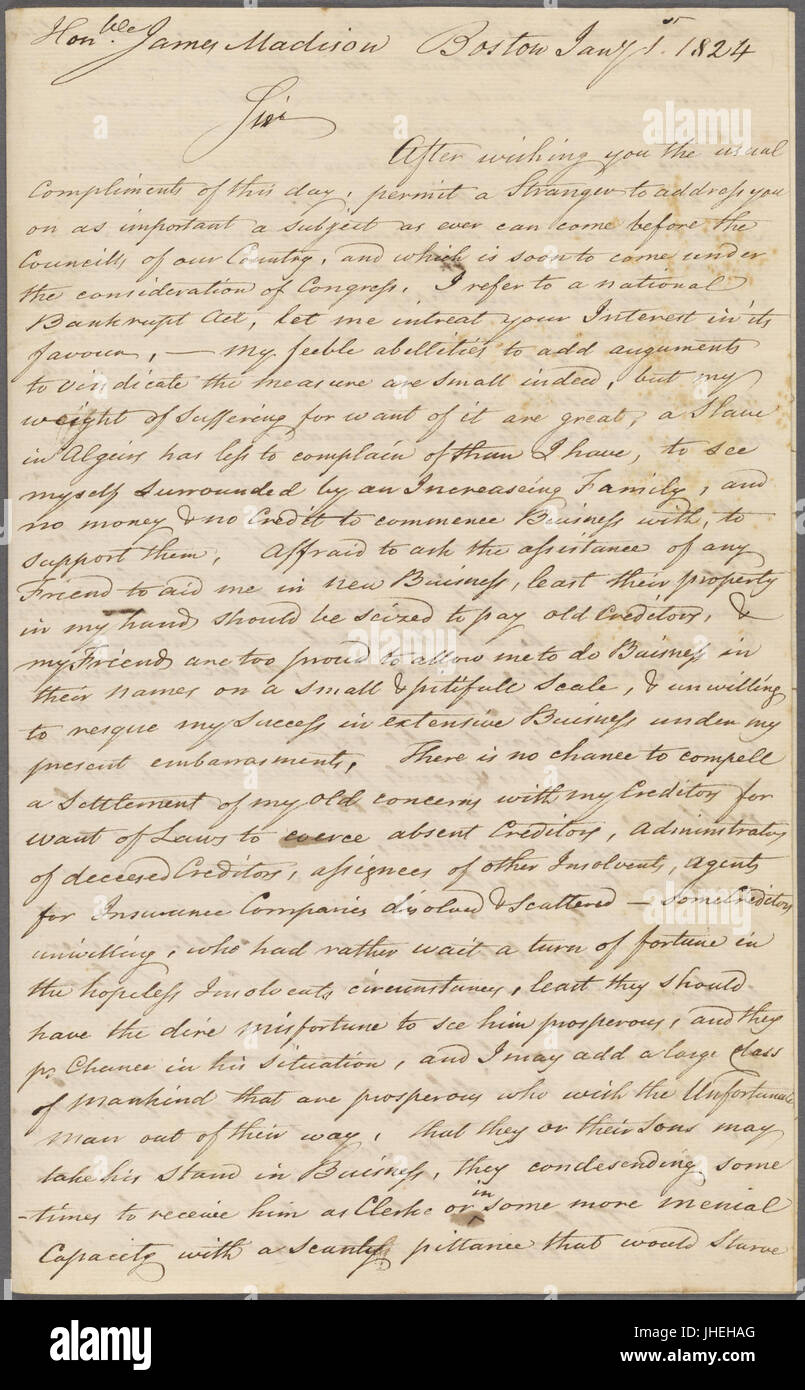 Honble. James Madison Boston Jany 1st. 1824
Sir
After wishing you the usual
compliments of this day, permit a Stranger to address you
on as important a subject as ever can come before the
Councills of our Country, and which is soon to come under
the consideration of Congress. I refer to a national
Bankrupt Act, let me intreat your Interest in its
favour, — my feeble abellities to add arguments
to vindicate the measure are small indeed, but my
weight of suffering for want of it are great, a Slave
in Algeirs has less to complain of than I have, to see
myself surrounded by an Increaseing Family, and
no money & no Credit to commence Buisness with, to
support them, Affraid to ask the assistance of any
Friend to aid me in new Buisness, least their property
in my hand should be seized to pay old Creditors, &
my Friends are too proud to allow me to do Buisness in
their names on a small & pitifull scale, & unwilling
to resque my success in extensive Buisness under my
present embarrasments, There is no chance to compell
a settlement of my old concerns with my Creditors for
want of Laws to coerce absent Creditors, Administrators
of deceesed Creditors, assignees of other Insolvents, Agents
for Insurance Companies disolved & scattered — some Creditors
unwilling, who had rather wait a turn of fortune in
the hopeless Insolvents circumstances, least they should
have the dire misfortune to see him prosperous, and they
pr Chance in his situation, and I may add a large Class
of mankind that are prosperous who wish the Unfortunate
man out of their way, that they or their Sons may
take his stand in Buisness, they condesending some
-times to receive him as Clerke or in some more menial
Capacity with a scanty pittance that would starve
alamy stock photo
JHEHAG
www.alamy.com